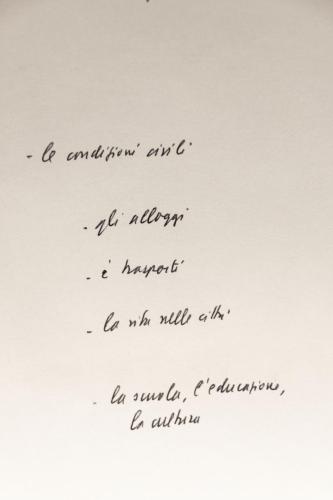 - le condizioni civili
- gli alloggi
- i trasporti
- la vita nelle città
- la scuola, l'educazione,
la cultura